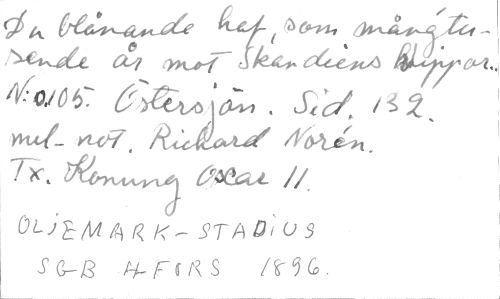 Du blånande haf, som mångtu-
sende år mot Skandiens klippor..
N:o 105. Östersjön. Sid. 132.
mel-not. Richard Norén.
Tx. Konung Oscar II.
OLJEMARK-STADIUS
SGB H-FORS 1896.